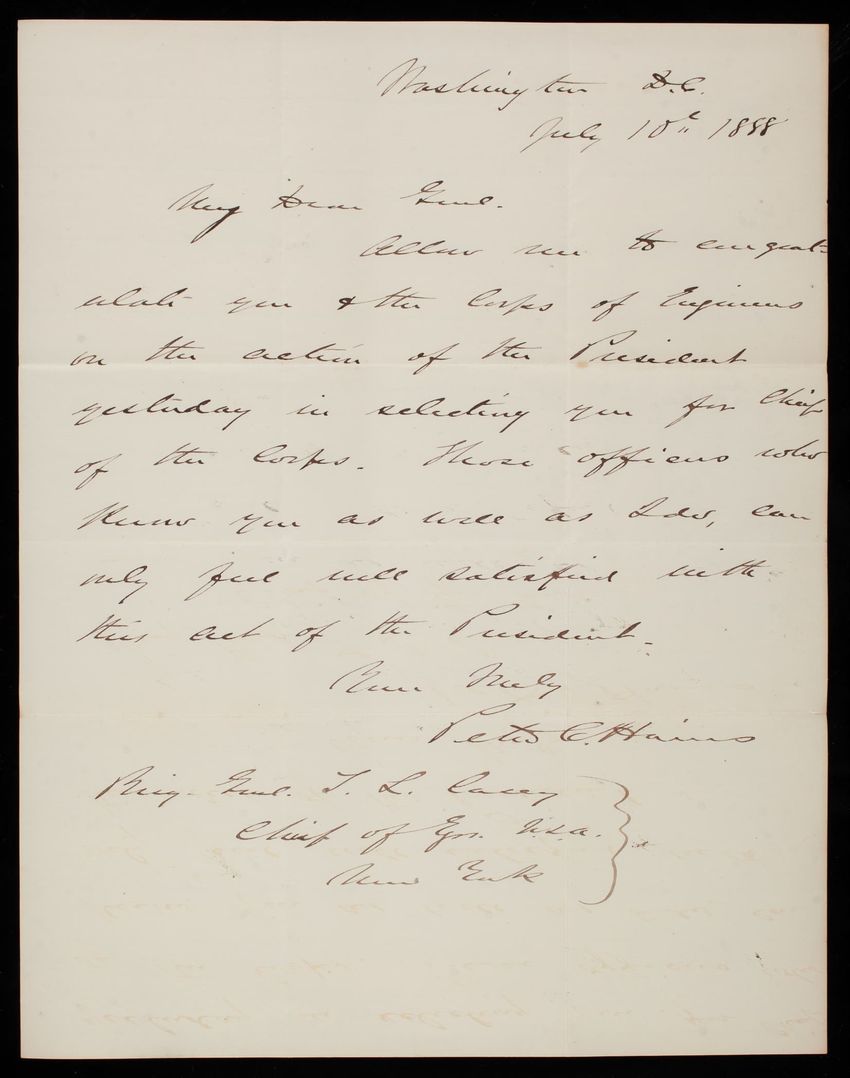 Washington D.C.
July 10th 1888
My Dear Genl.
Allow me to congrat-
ulate you & the Corps of Engineers
on the action of the President
yesterday in selecting you for Chief
of the Corps. Those officers who
know you as well as I do, can
only feel well satisfied with
this act of the President.
Yours Truly
Peter C. Hains
Brig. Genl. T. L. Casey
Chief of Egrs. U.S.A.
New York